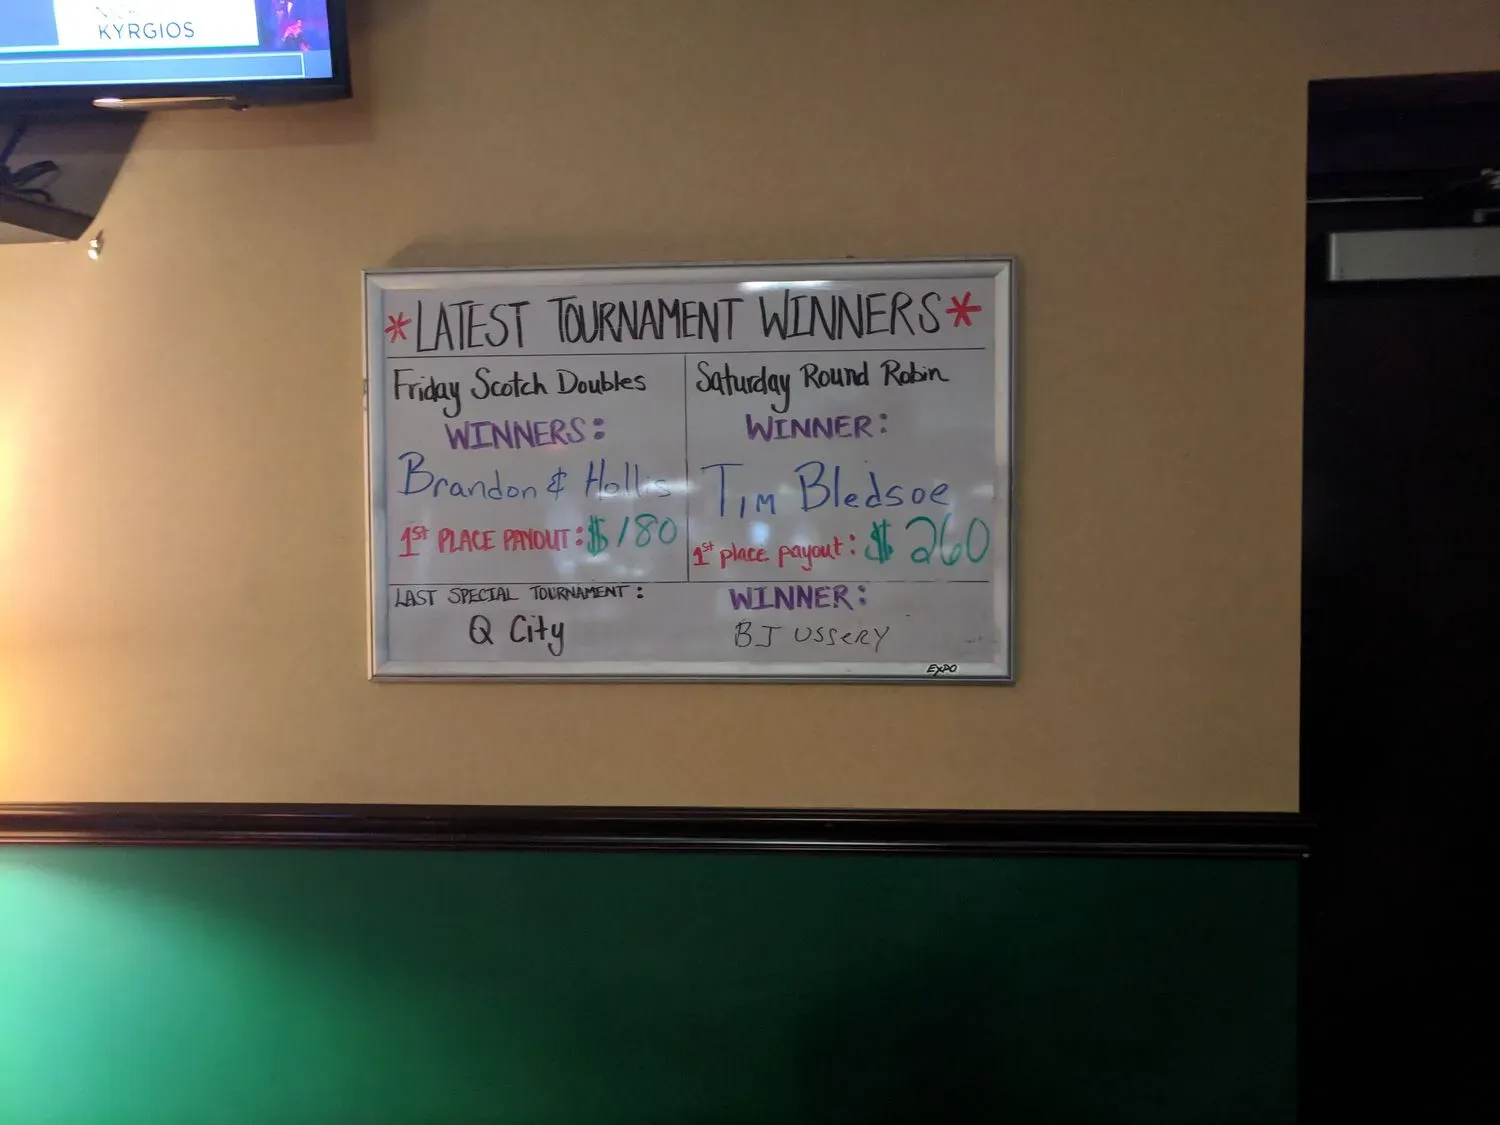 KYRGIOS
*LATEST TOURNAMENT WINNERS*
Friday Scotch Doubles
WINNERS:
Brandon & Hollis
1st PLACE PAYOUT: $180
Saturday Round Robin
WINNER:
Tim Bledsoe
1st place payout: $260
LAST SPECIAL TOURNAMENT:
Q City
WINNER:
BJ USSERY
EXPO